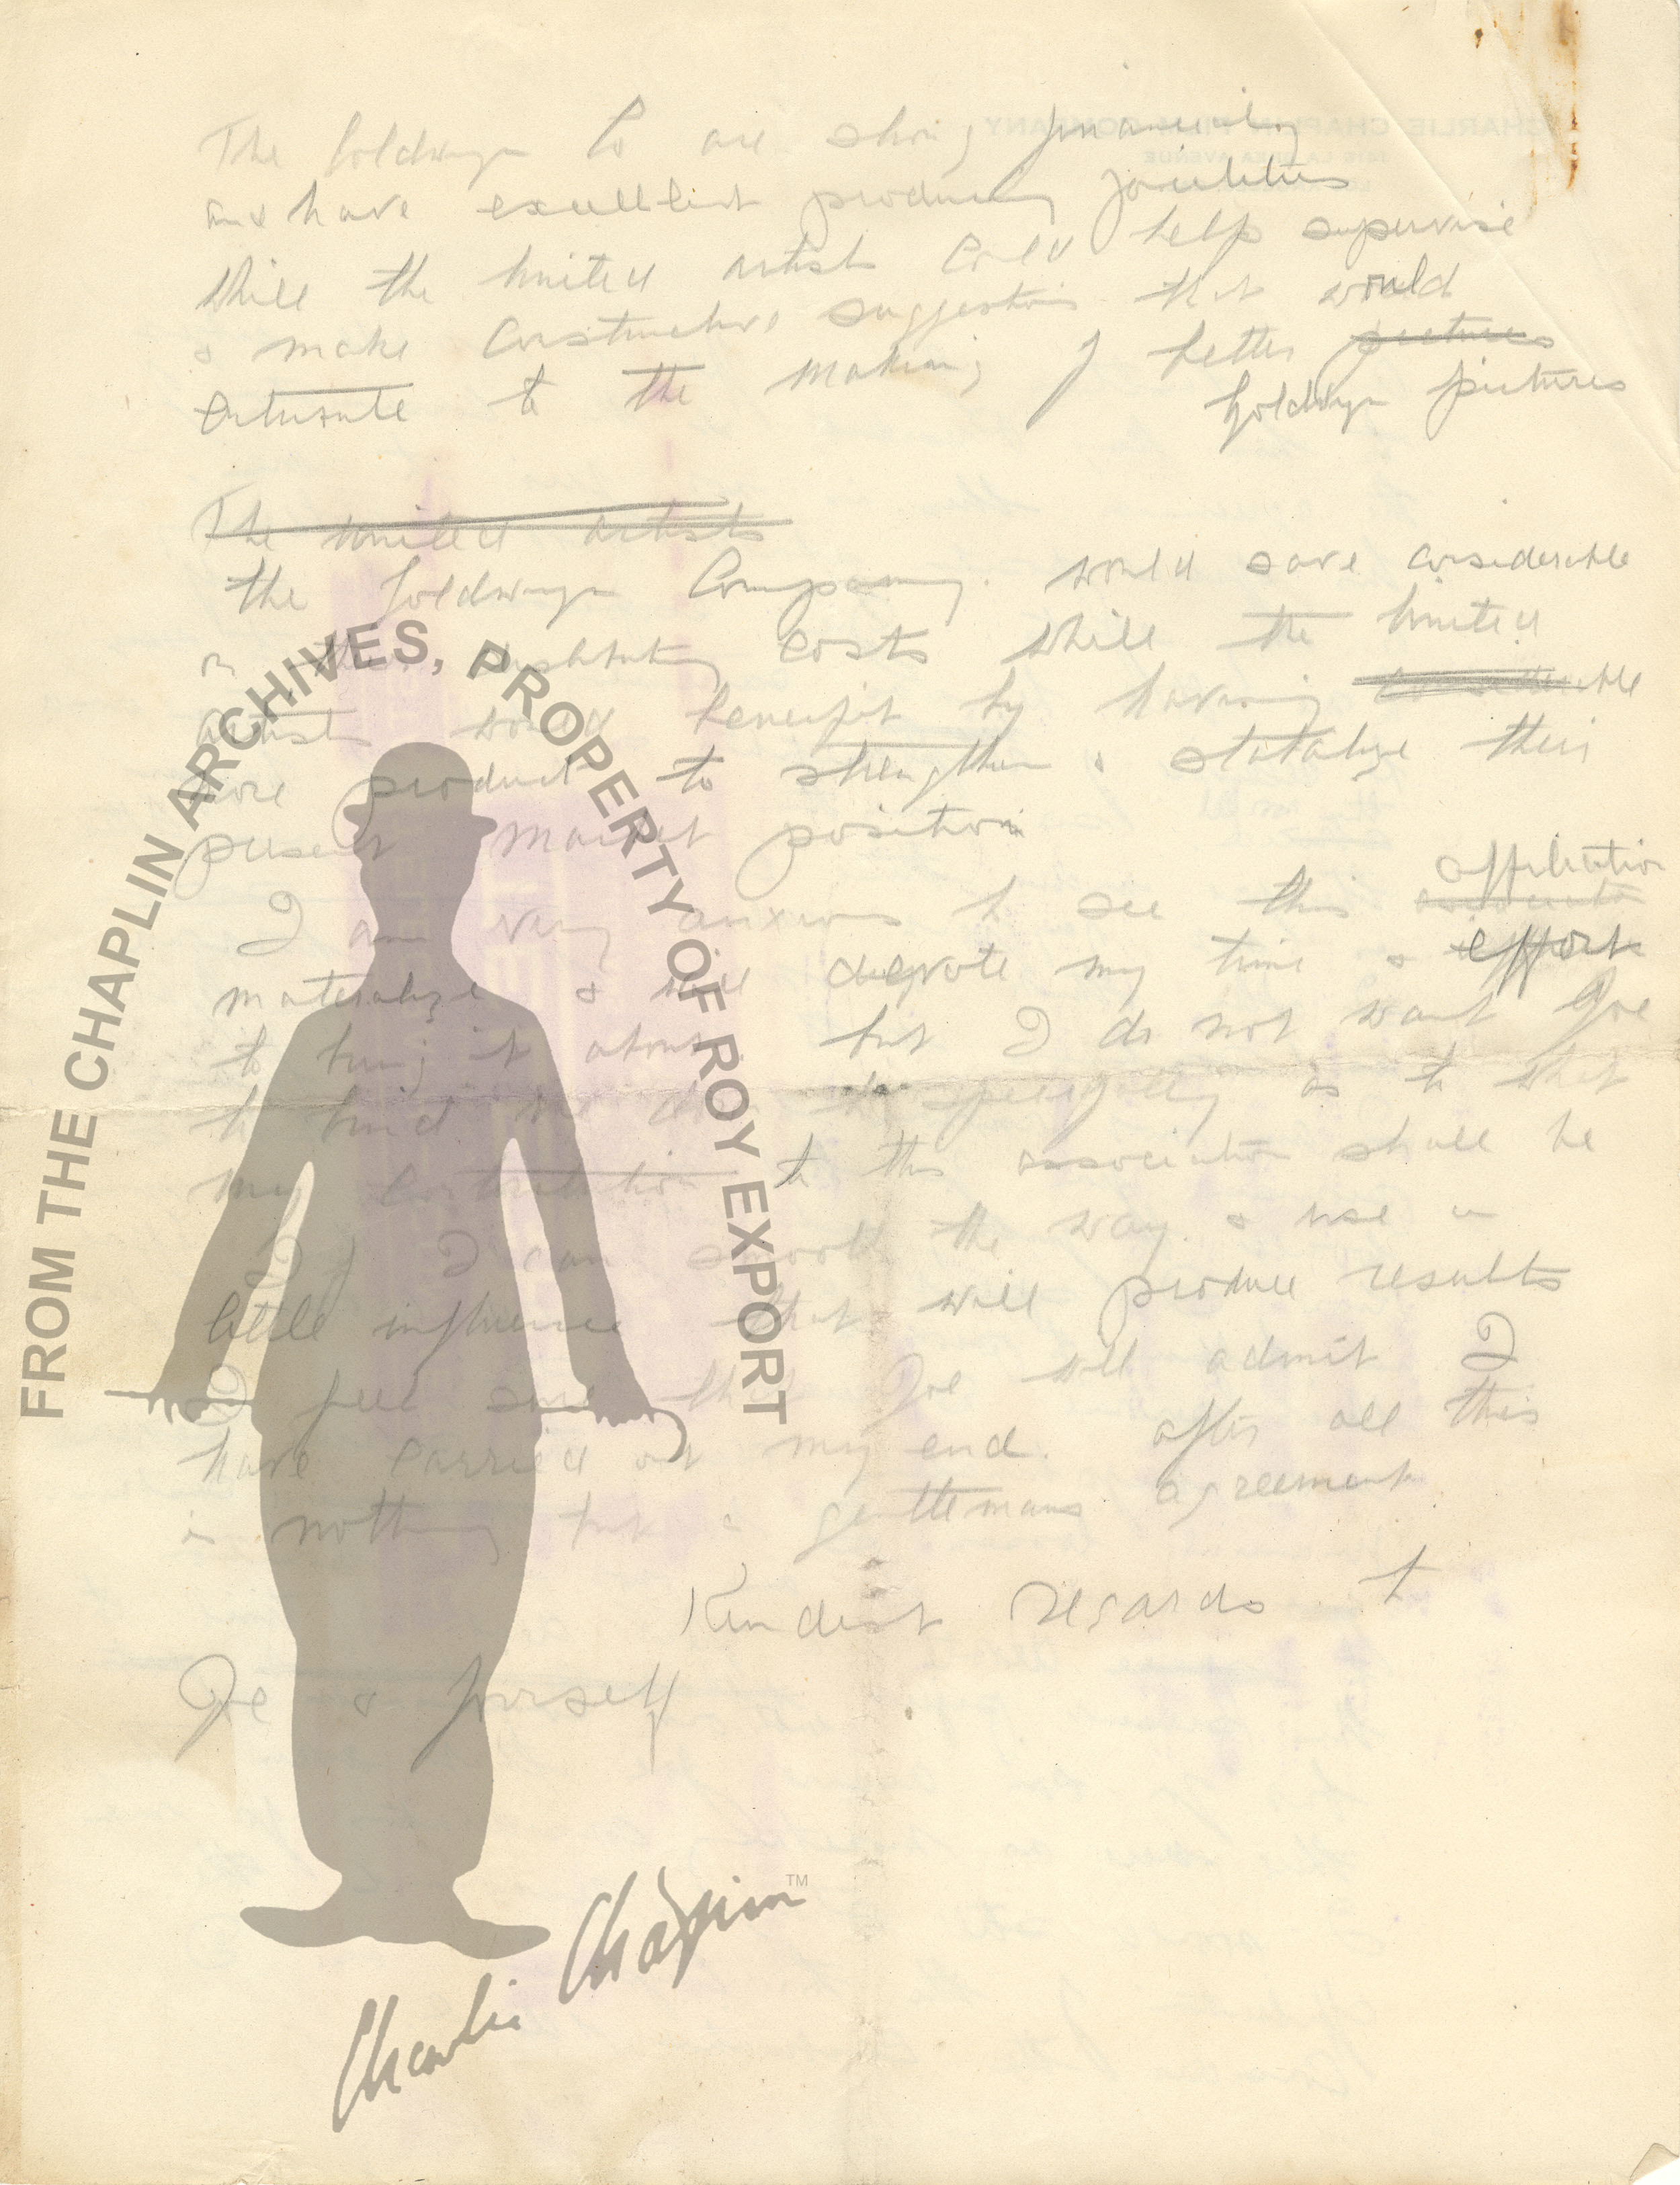 The Goldwyn Co are strong financially
and have excellent producing facilities
While the United artists Could help supervise
& make Constructive suggestions that would
to the making of better pictures
Goldwyn pictures
The United artists
the Goldwyn Company. would save considerable
on their distributing costs while the United
Artists would benefit by having considerable
more product to strengthen & stabalize their
present market position
affiliation
I am very anxious to see this
materalize & will devote my time & effort
to bring it about but I do not want Joe
to me down to specifically as to what
my Contribution to this association shall be
If I can smooth the way & use a
little influence that will produce results
I feel sure that Joe will admit I
have carried out my end. after all this
is nothing but a gentlemans agreement
Kindest regards to
Joe & yourself
FROM THE CHAPLIN ARCHIVES, PROPERTY OF ROY EXPORT
Charlie Chaplin™
CHARLIE CHAPLIN FILM COMPANY
1416 LA BREA AVENUE